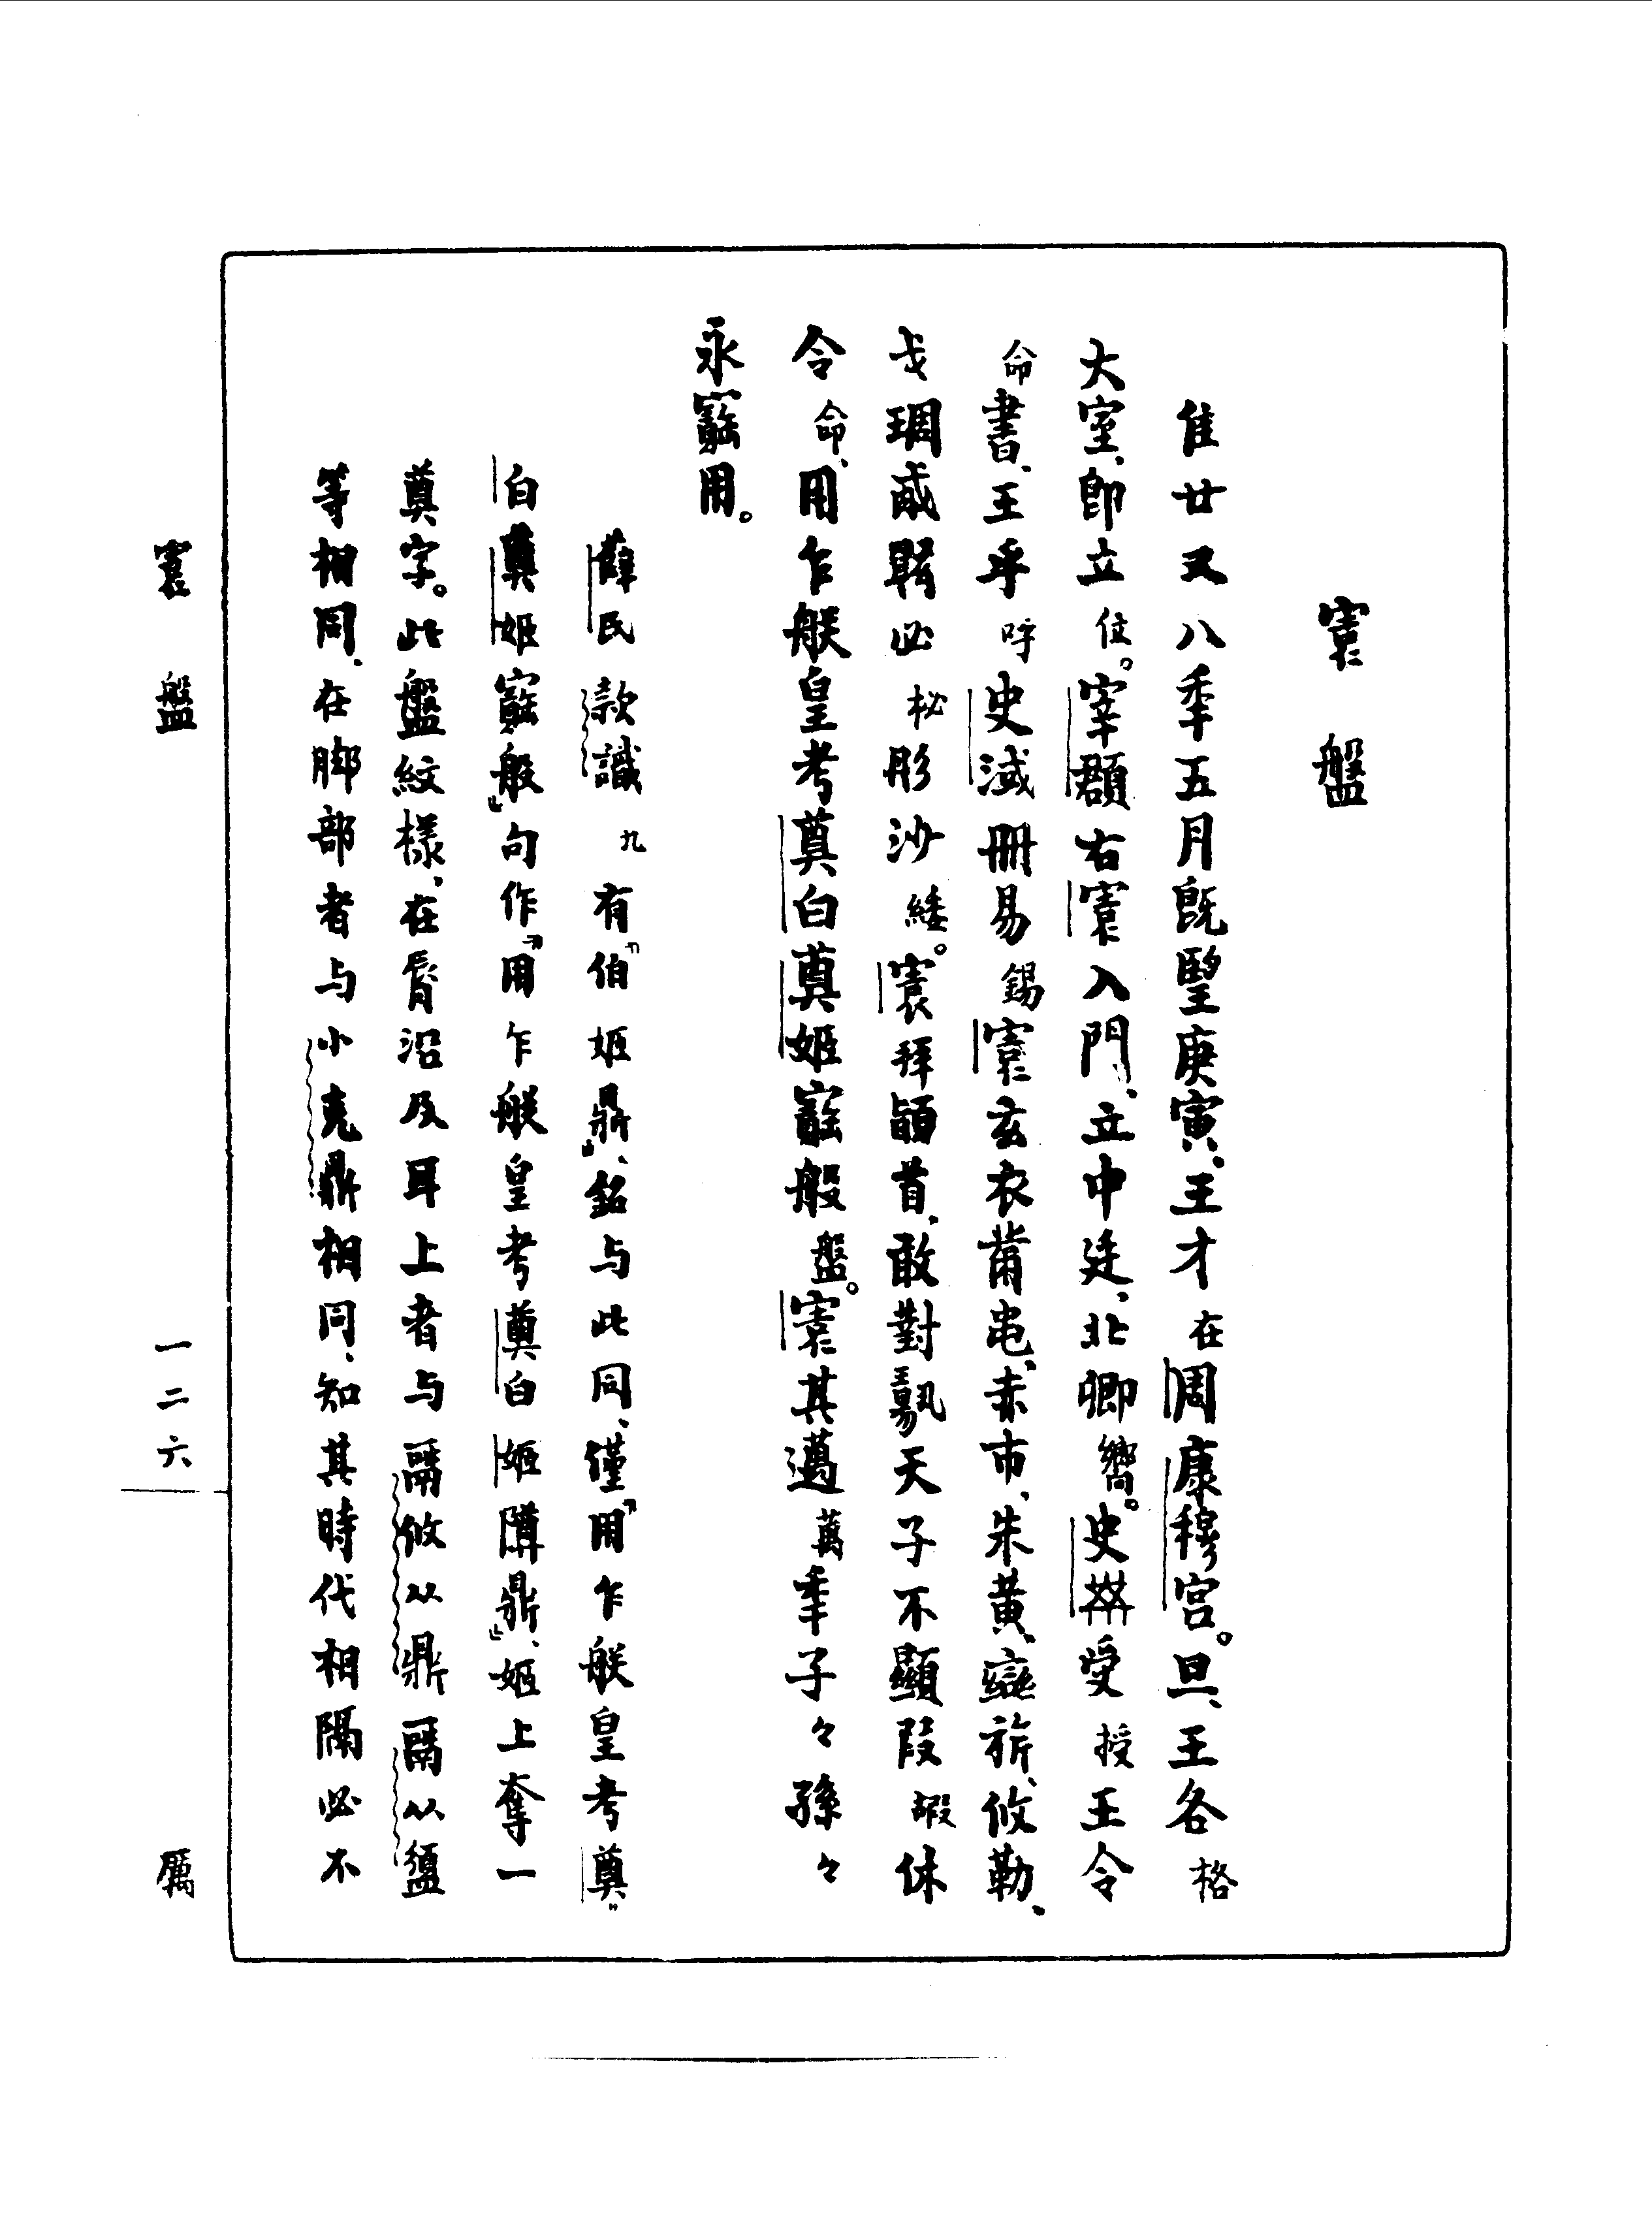 寰盤
隹廿又八年五月既朢庚寅、王才在周康穆宮。旦、王各格
大室、即立位。宰頵右寰入門、立中廷、北鄉嚮。史𦅫受授王令
命書、王乎呼史淢冊易錫寰玄衣黹屯、赤巿、朱黃、䜌旂、攸勒、
戈琱㦰必柲彤沙緌。寰拜𩒨首、敢對𩛥天子不顯叚嘏休
令命、用乍朕皇考奠白奠姬寶般盤。寰其邁萬年子々孫々
永寶用。
薛氏款識九有『伯姬鼎』、銘与此同、僅『用乍朕皇考奠
白奠姬寶般』句作『用乍朕皇考奠白姬𨻰鼎』、姬上奪一
奠字。此盤紋樣、在脣沿及耳上者与䰙攸从鼎䰙从盨
等相同、在脚部者与小克鼎相同、知其時代相隔必不
寰盤 一二六 厲